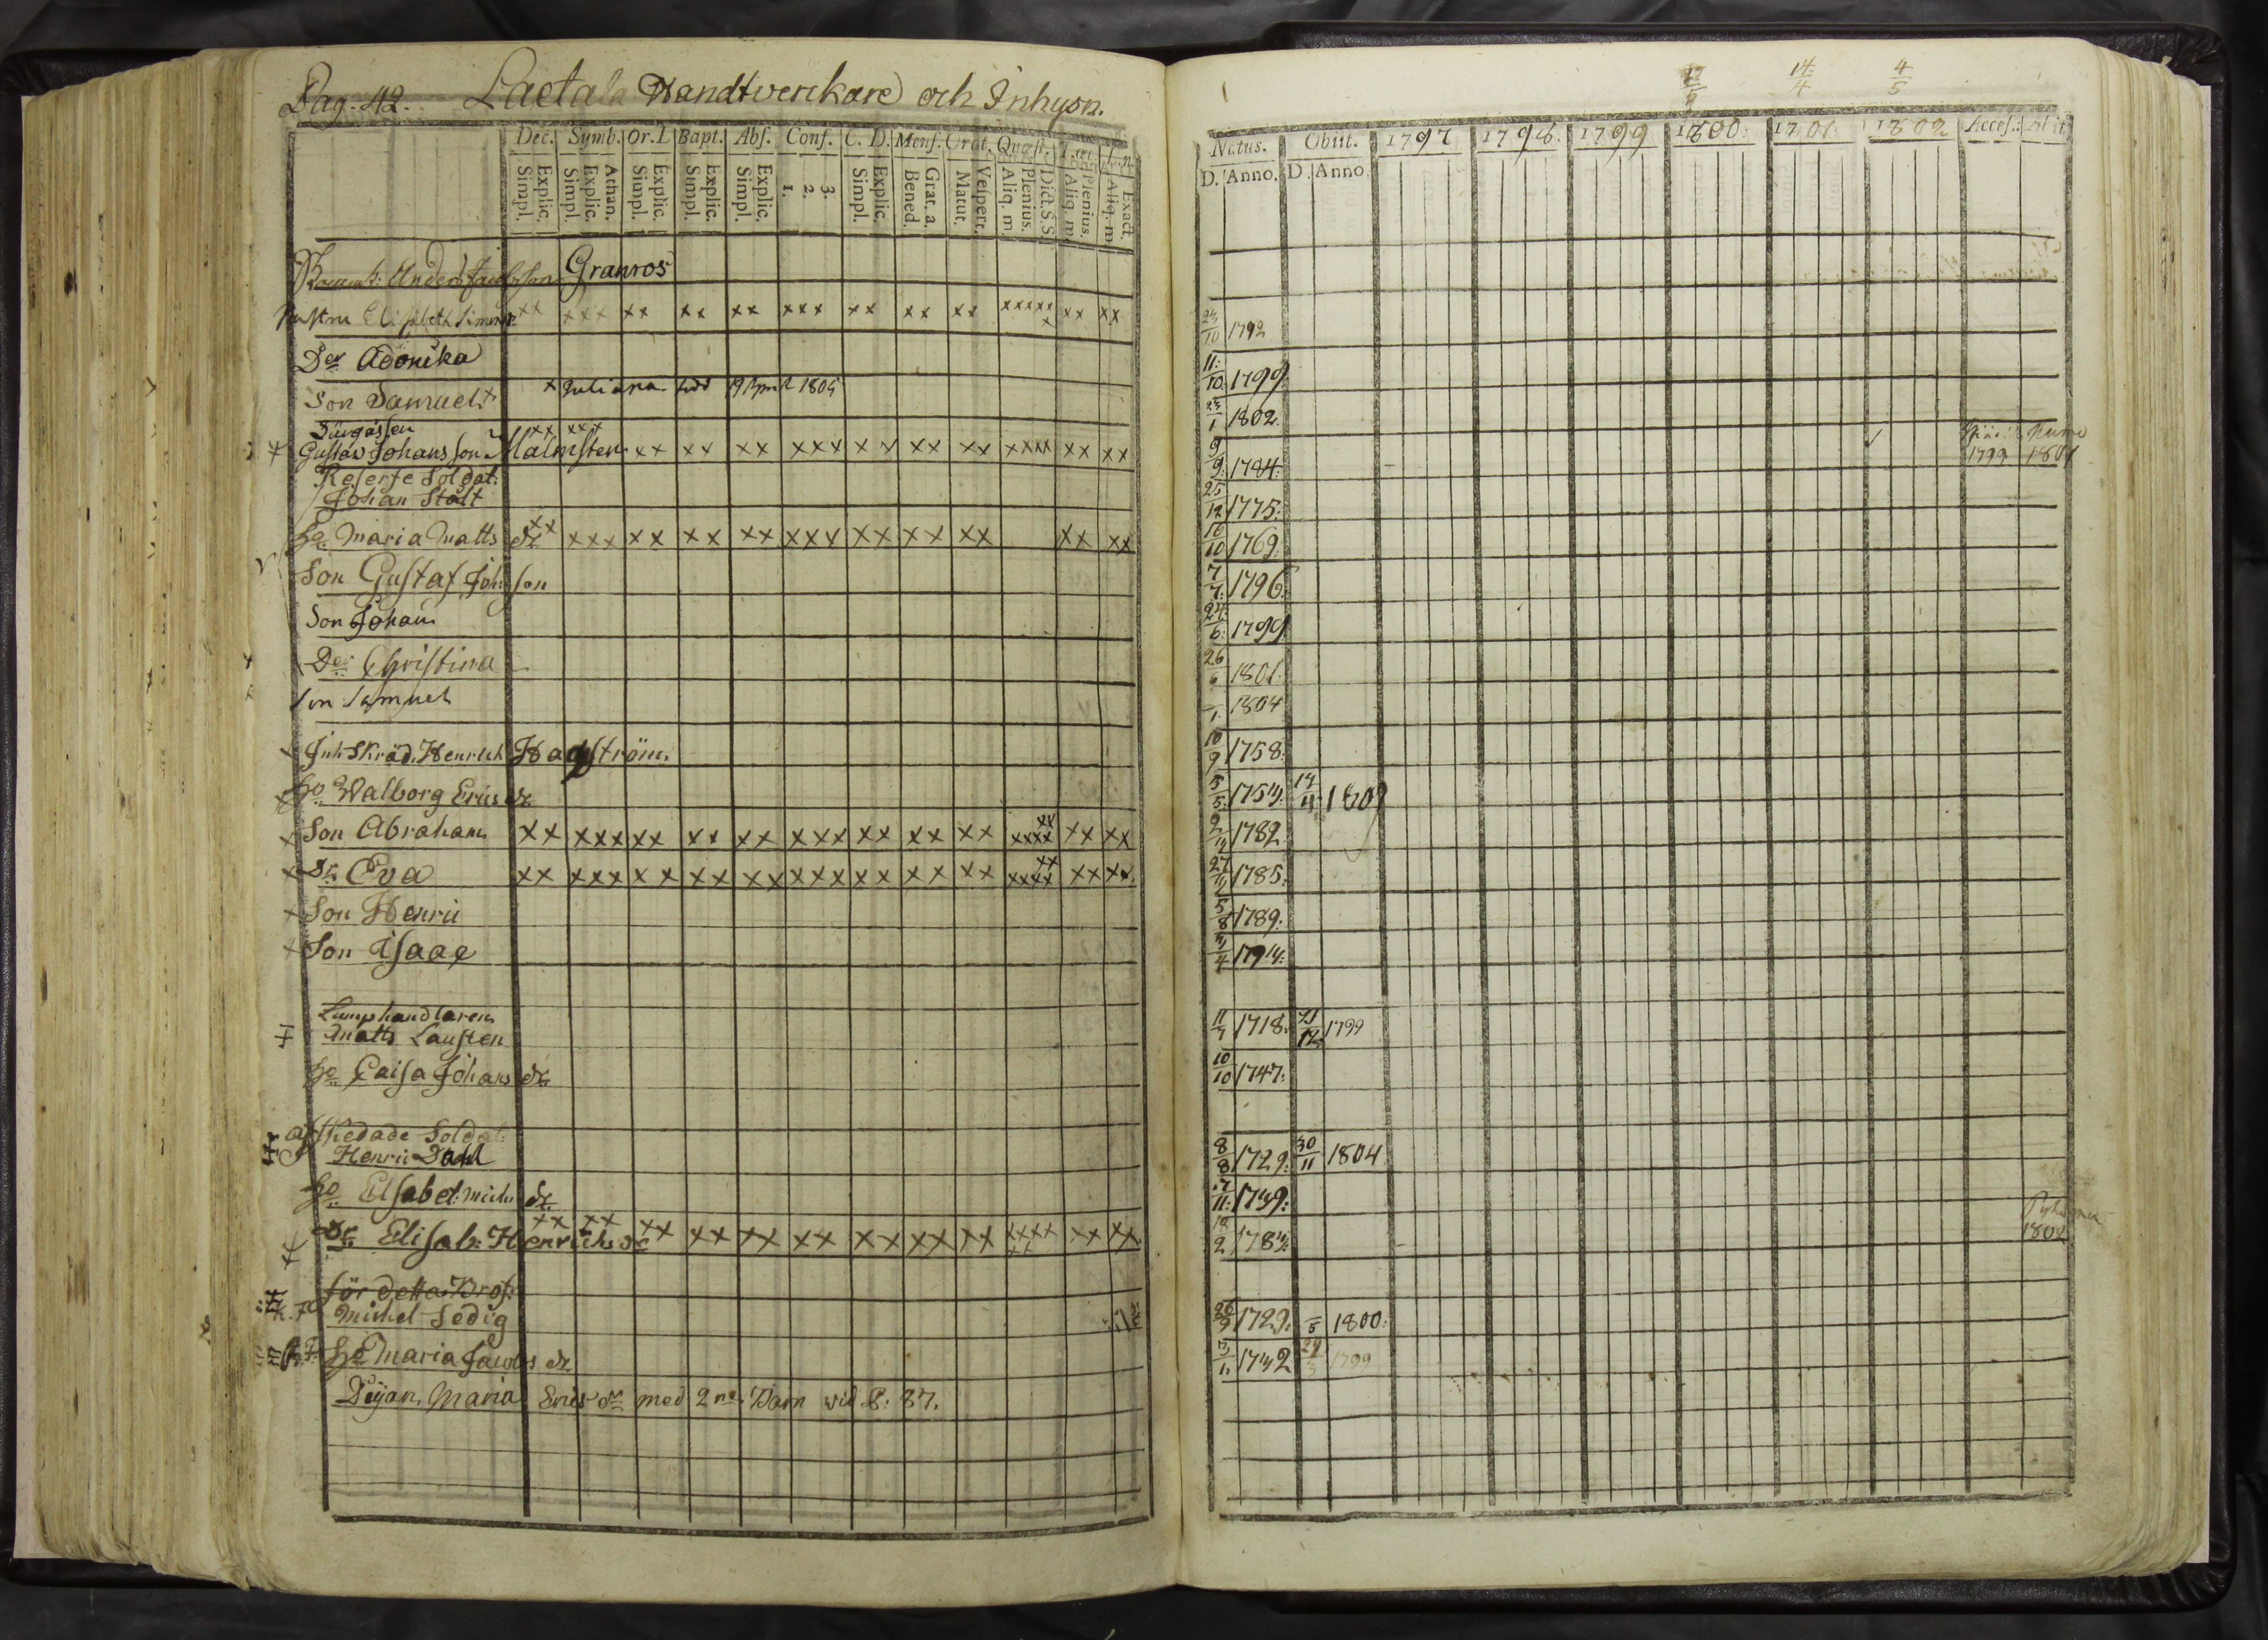 Pag. 42. Laetala Handtverckare och Inhysn.
Dec. Symb. Or. D. Bapt. Abs. Conf. C. D. Mens. Orat. Quæst.
Explic. Simpl. Athan. Explic. Simpl. Explic. Simpl. Explic. Simpl. Explic. Simpl. 3. 2. 1. Explic. Simpl. Grat. a. Bened. Vespert. Matut. Dict. S.S. Plenius. Aliq. m Plenius. Aliq. m Exact. Aliq. m
Anders Jacobsson Granros
Hustru Elisabeth Simons xx xxx xx xx xx xxx xx xx xx xxxxx x xx xx
Dr Adonika
Son Samuel + x Juliana född 19 April 1805
Gustav Johansson Malmsten xx xxx xx xx xx xxx xx xx xx xxxx xx xx
Reserfe Soldat
Johan Stolt
Ho. Maria Matts dr xx xxx xx xx xx xxx xx xx xx xx xx
Son Gustaf Joh: son
Son Johan
Dr Christina
Son Samuel
Inh. Skräd. Henrich Hagström.
Ho Walborg Erics dr
Son Abraham xx xxx xx xx xx xxx xx xx xx xx xxxx xx xx
Dr. Eva xx xxx xx xx xx xxx xx xx xx xx xxxx xx xx
Son Henric
Son Isaac
Lumphandlaren
Matts Lausten
Ho Caisa Johans dr
afskedade Soldat
Henric Dahl
Ho Elsabet: Mich: dr
Dr Elisab: Henrichs dr xx xx xx xx xx xx xx xx xx xxxx xx xx xx
för detta
Michel Sedig
Ho Maria Jacobs dr
Pijan Maria Erics dr med 2ne Barn vid P. 87.
17/9 14/4 4/5
Natus. Obiit. 1797 1798 1799 1800 1701 1802 Access. Abiit
D. Anno. D. Anno
23/10 1792
11/10 1799
23/1 1802
9/9 1784. 1799 1801
25/12 1775.
16/10 1769.
7/7 1796.
24/6 1799
26/6 1801.
1. 1804
10/9 1758.
5/5 1754. 14/4 1809
2/4 1782
27/4 1785.
5/8 1789.
3/4 1794.
11/7 1718. 21/12 1799
10/10 1747.
8/8 1729. 30/11 1804
17/11 1749.
18/2 1784. 1802
26/9 1729. /5 1800.
3/1 1742 24/3 1799